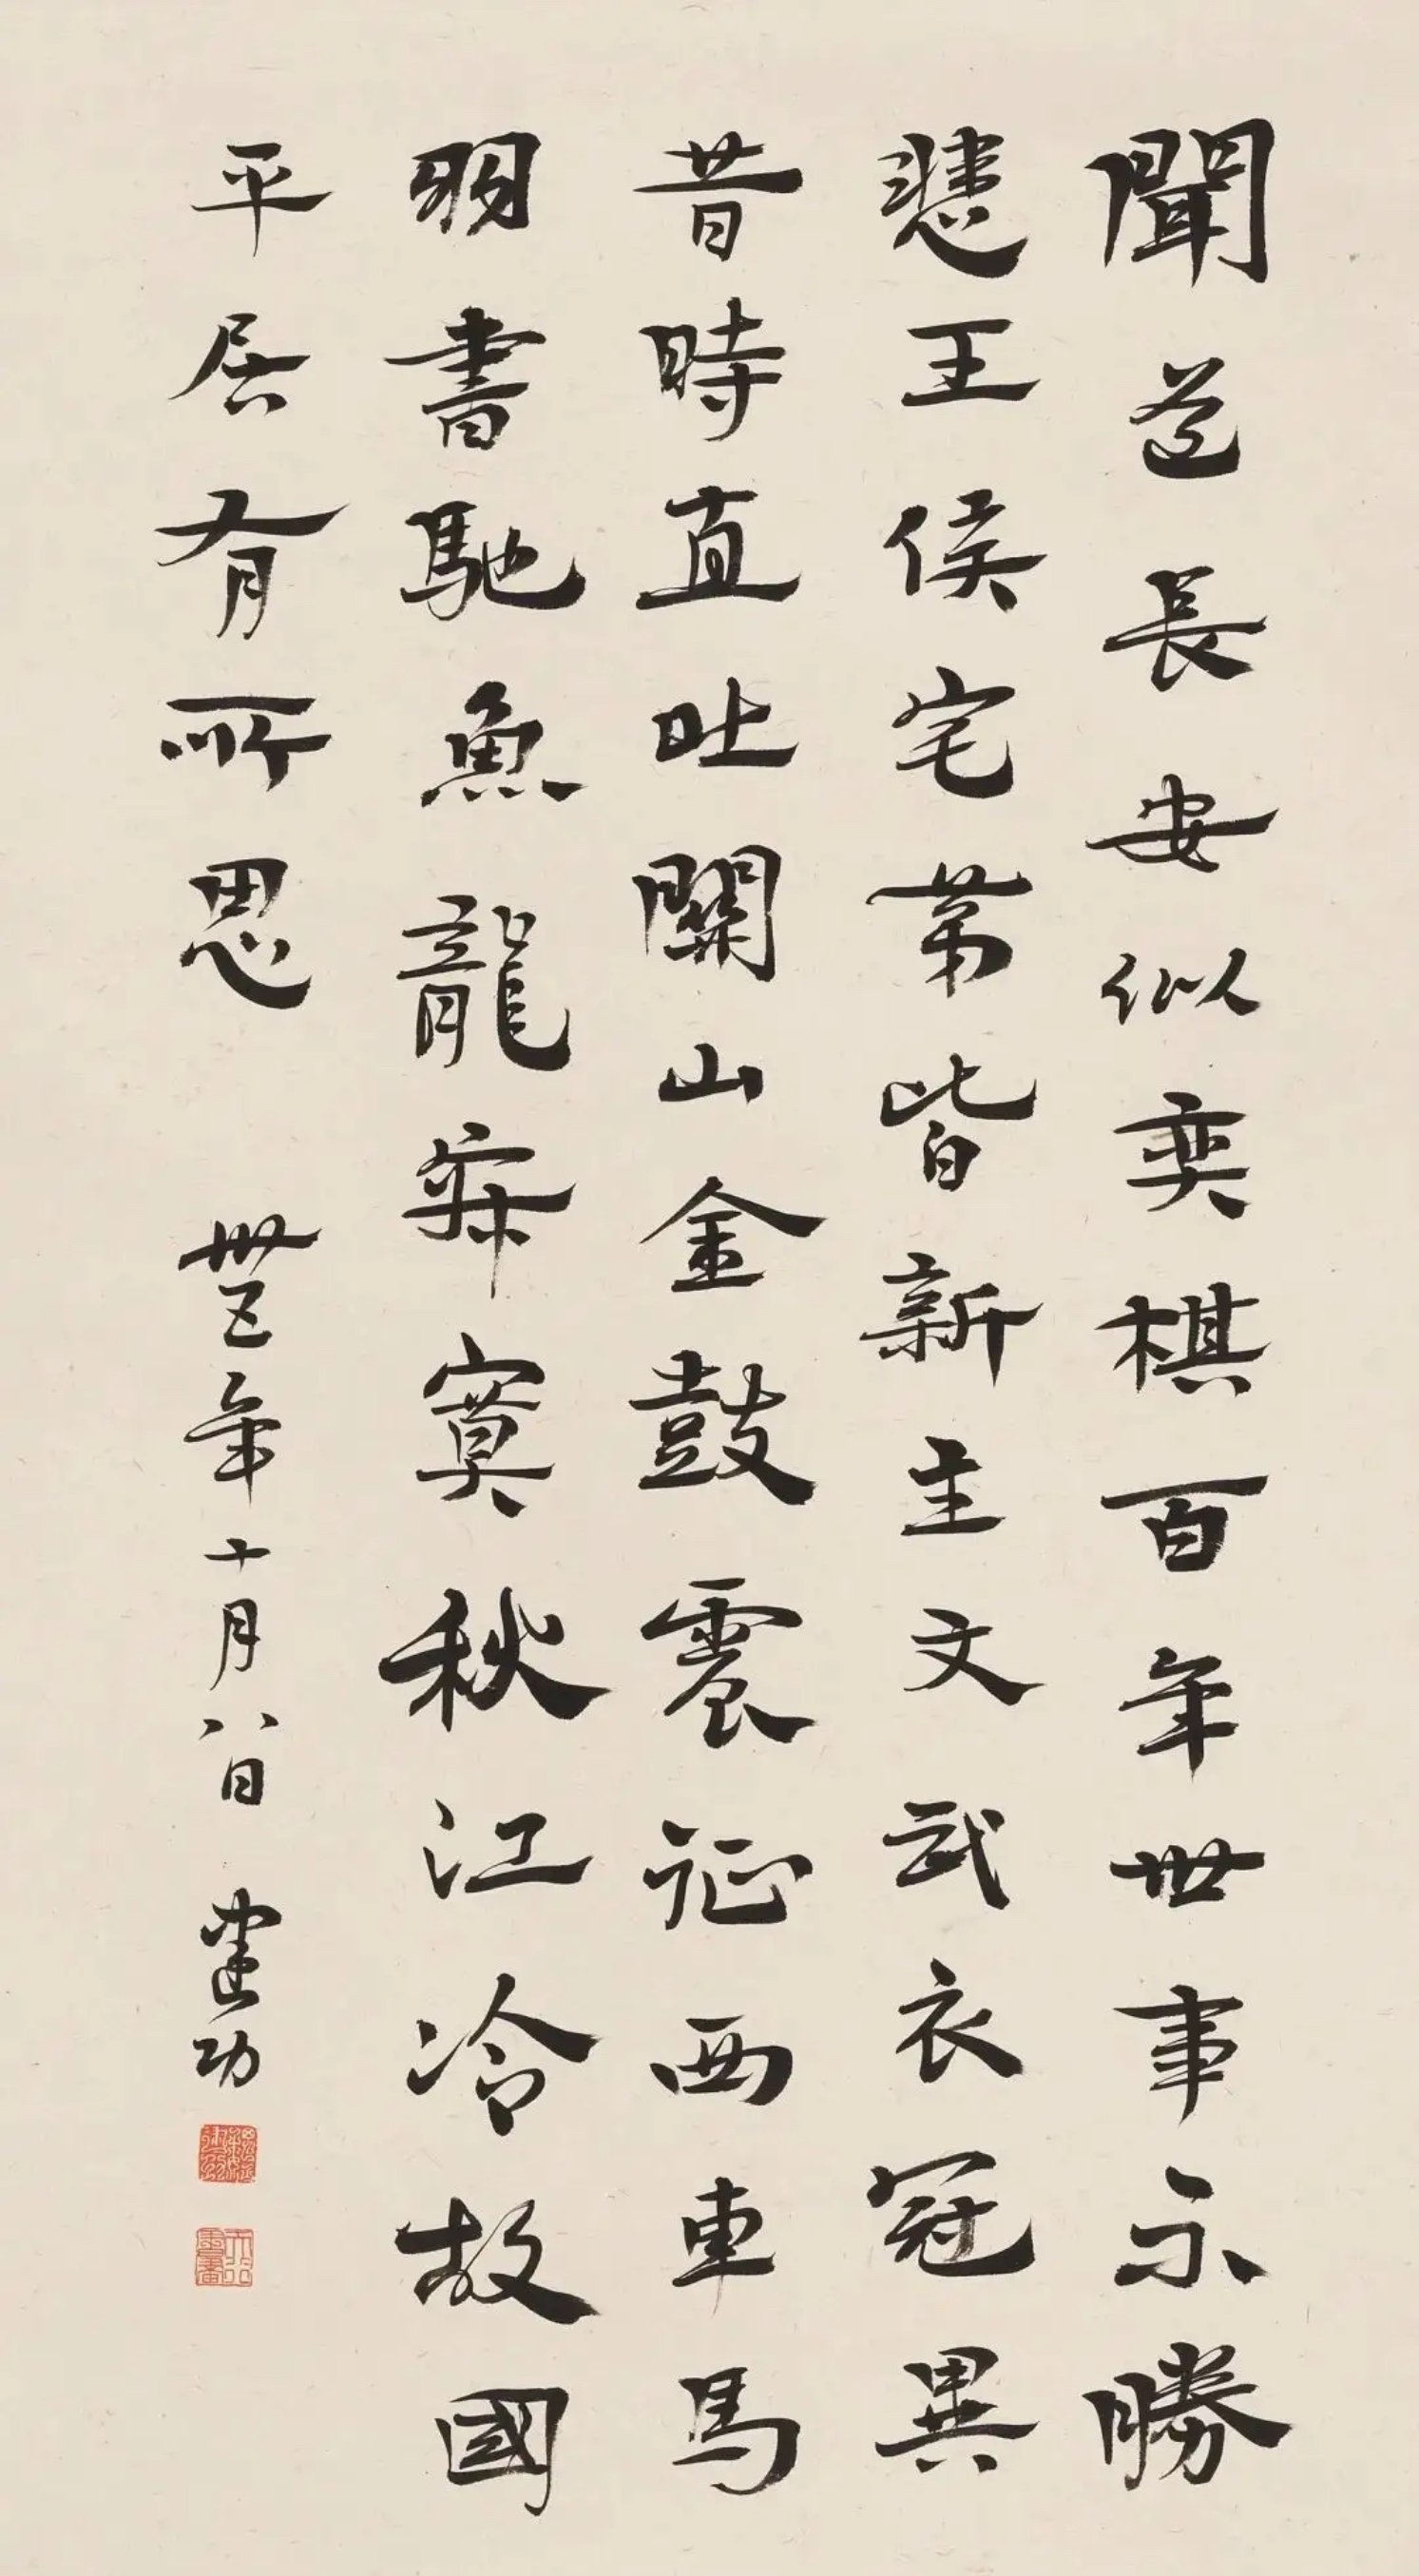 聞道長安似奕棋百年世事不勝
悲王侯宅苐皆新主文武衣冠異
昔時直北關山金鼓震征西車馬
羽書馳魚龍寂寞秋江冷故國
平居有所思
卅五年十月八日
建功